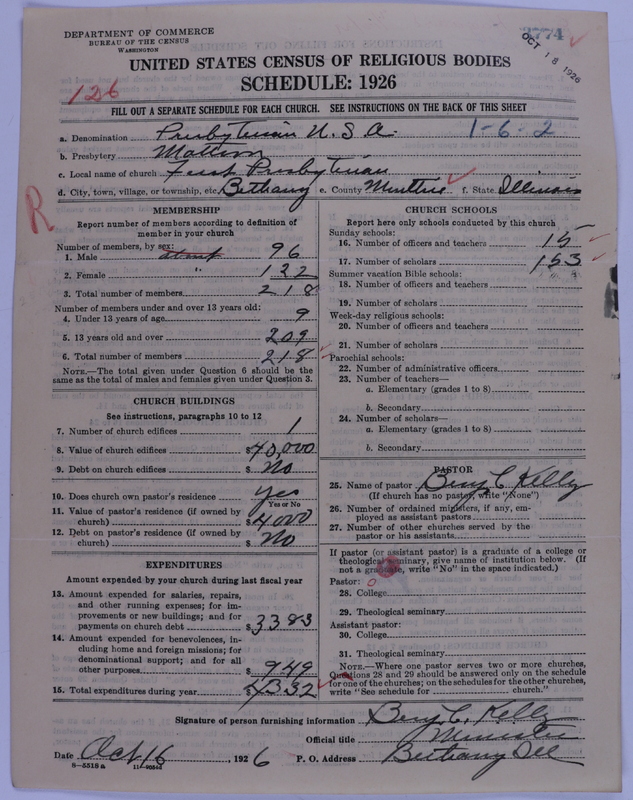 DEPARTMENT OF COMMERCE
BUREAU OF THE CENSUS
WASHINGTON
3774
OCT 18 1926
UNITED STATES CENSUS OF RELIGIOUS BODIES
SCHEDULE: 1926
126
FILL OUT A SEPARATE SCHEDULE FOR EACH CHURCH. SEE INSTRUCTIONS ON THE BACK OF THIS SHEET
a. Denomination Presbyterian U.S.A. 1-6-2
b. Presbytery Mattoon
c. Local name of church First Presbyterian
d. City, town, village, or township, etc. Bethany e. County Moultrie f. State Illinois
R
MEMBERSHIP
Report number of members according to definition of
member in your church
Number of members, by sex:
1. Male about 96
2. Female " 122
3. Total number of members 218
Number of members under and over 13 years old:
4. Under 13 years of age 9
5. 13 years old and over 209
6. Total number of members 218
NOTE.—The total given under Question 6 should be the
same as the total of males and females given under Question 3.
CHURCH BUILDINGS
See instructions, paragraphs 10 to 12
7. Number of church edifices 1
8. Value of church edifices $40,000
9. Debt on church edifices $ No
10. Does church own pastor's residence yes
Yes or No
11. Value of pastor's residence (if owned by
church) $4000
12. Debt on pastor's residence (if owned by
church) $ No
EXPENDITURES
Amount expended by your church during last fiscal year
13. Amount expended for salaries, repairs,
and other running expenses; for im-
provements or new buildings; and for
payments on church debt $3383
14. Amount expended for benevolences, in-
cluding home and foreign missions; for
denominational support; and for all
other purposes $949
15. Total expenditures during year $4332
CHURCH SCHOOLS
Report here only schools conducted by this church
Sunday schools:
16. Number of officers and teachers 15
17. Number of scholars 153
Summer vacation Bible schools:
18. Number of officers and teachers
19. Number of scholars
Week-day religious schools:
20. Number of officers and teachers
21. Number of scholars
Parochial schools:
22. Number of administrative officers
23. Number of teachers—
a. Elementary (grades 1 to 8)
b. Secondary
24. Number of scholars—
a. Elementary (grades 1 to 8)
b. Secondary
PASTOR
25. Name of pastor Benj C Kelly
(If church has no pastor, write "None")
26. Number of ordained ministers, if any, em-
ployed as assistant pastors
27. Number of other churches served by the
pastor or his assistants
If pastor (or assistant pastor) is a graduate of a college or
theological seminary, give name of institution below. (If
not a graduate, write "No" in the space indicated.)
Pastor: 0
28. College
29. Theological seminary
Assistant pastor:
30. College
31. Theological seminary
NOTE.—Where one pastor serves two or more churches,
Questions 28 and 29 should be answered only on the schedule
for one of the churches; on the schedules for the other churches,
write "See schedule for church."
Signature of person furnishing information Benj. C. Kelly
Official title Minister
Date Oct 16, 1926 P. O. Address Bethany Ill
8-5518a 11-90544